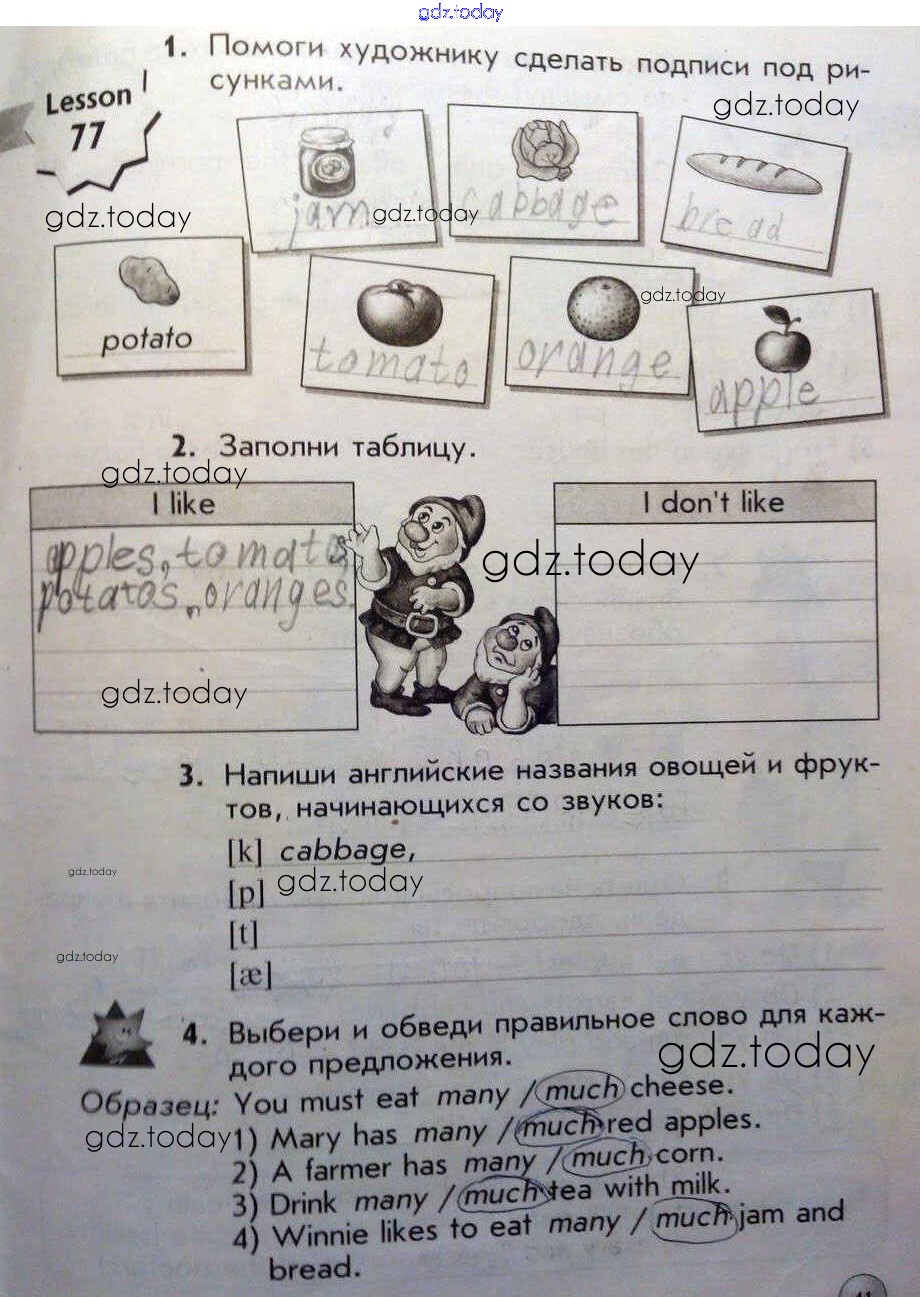 gdz.today
1. Помоги художнику сделать подписи под ри-
сунками.
gdz.today
Lesson
77
gdz.today
jam
gdz.today
cabbage
bread
potato
tomato
orange
gdz.today
apple
2. Заполни таблицу.
gdz.today
I like
I don't like
apples, tomatos
potatos, oranges.
gdz.today
gdz.today
3. Напиши английские названия овощей и фрук-
тов, начинающихся со звуков:
[k] cabbage,
gdz.today
[p] gdz.today
[t]
gdz.today
[æ]
4. Выбери и обведи правильное слово для каж-
дого предложения.
gdz.today
Образец: You must eat many / much cheese.
gdz.today
1) Mary has many / much red apples.
2) A farmer has many / much corn.
3) Drink many / much tea with milk.
4) Winnie likes to eat many / much jam and
bread.